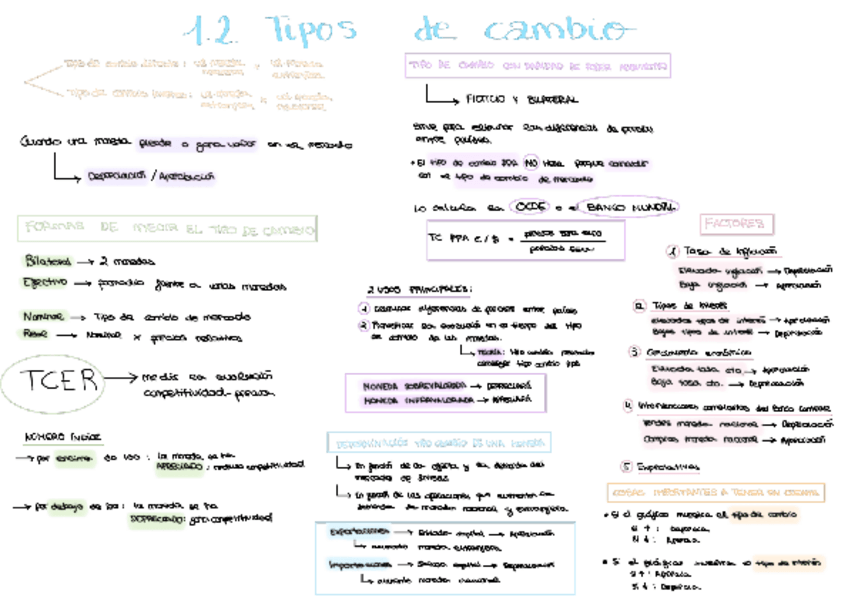 1.2. Tipos de cambio
Tipo de cambio directo:
Tipo de cambio
Cuando una moneda pierde o gana valor en el mercado
Depreciación / Apreciación
FORMAS DE MEDIR EL TIPO DE CAMBIO
Bilateral → 2 monedas
Efectivo → promedio frente a varias monedas
Nominal → Tipo de cambio de mercado
Real → Nominal x precios relativos
TCER → medir la evolución
competitividad-precio
NÚMERO ÍNDICE
→ por encima de 100: la moneda se ha
APRECIADO: competitividad
→ por debajo de 100: la moneda se ha
DEPRECIADO: gana competitividad
TIPO DE CAMBIO CON PARIDAD DE PODER ADQUISITIVO
FICTICIO Y BILATERAL
Sirve para estimar las diferencias de precios
entre países.
• El tipo de cambio PPA NO tiene porque coincidir
con el tipo de cambio de mercado
Lo calcula la OCDE o el BANCO MUNDIAL
TC PPA € / $ =
2 USOS PRINCIPALES:
1 diferencias de precios entre países
2 la evolución en el tiempo del tipo
de cambio de las monedas.
MONEDA SOBREVALORADA → DEPRECIARÁ
MONEDA INFRAVALORADA → APRECIARÁ
DETERMINACIÓN TIPO CAMBIO DE UNA MONEDA
En función de la oferta y la demanda del
mercado de divisas
En función de las operaciones que aumentan la
demanda de moneda nacional y extranjera.
Exportaciones → Entrada capital → Apreciación
moneda extranjera
Importaciones → Salida capital → Depreciación
aumento moneda nacional
FACTORES
1 Tasa de inflación
Elevada inflación → Depreciación
Baja inflación → Apreciación
2 Tipos de interés
Elevados tipos de interés → Apreciación
Bajos tipos de interés → Depreciación
3 Crecimiento económico
Elevada tasa cto. → Apreciación
Baja tasa cto. → Depreciación
4 Intervenciones del banco central
Vender moneda nacional → Depreciación
Comprar moneda nacional → Apreciación
5 Expectativas
COSAS IMPORTANTES A TENER EN CUENTA
• Si el gráfico muestra el tipo de cambio
Si ↑: Deprecia
Si ↓: Aprecia
• Si el gráfico muestra tipo de interés
Si ↑: Aprecia
Si ↓: Deprecia.